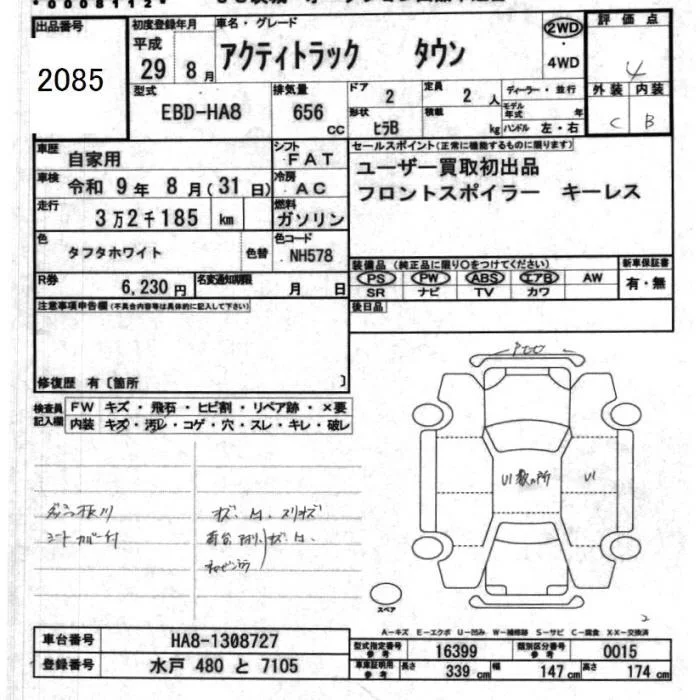 出品番号
2085
初度登録年月
平成
29年8月
車名・グレード
アクティトラック タウン
2WD
・
4WD
評価点
4
型式
EBD-HA8
排気量
656 cc
ドア 2
形状 ヒラB
定員 2 人
積載 kg
ディーラー・並行
モデル年式 年
ハンドル 左・右
外装 内装
C B
車歴 自家用
シフト FAT
車検 令和 9年 8月(31日)
冷房 AC
走行 3万2千185 km
燃料 ガソリン
色 タフタホワイト 色替
色コード NH578
R券 6,230円
名変通知期限 月 日
セールスポイント(正常に機能するものに限ります)
ユーザー買取初出品
フロントスポイラー キーレス
装備品(純正品に限り○をつけてください)
PS PW ABS エアB AW
SR ナビ TV カワ
新車保証書
有・無
後日品
注意事項申告欄(不具合内容等は具体的に記入して下さい)
修復歴 有〔箇所 〕
検査員記入欄
FW キズ・飛石・ヒビ割・リペア跡・×要
内装 キズ・汚レ・コゲ・穴・スレ・キレ・破レ
シートカバー付
U1数ヵ所
U1
スペア
2
A-キズ E-エクボ U-凹み W-補修跡 S-サビ C-腐食 X・XX-交換済
車台番号 HA8-1308727
登録番号 水戸 480 と 7105
型式指定番号 参考 16399
類別区分番号 参考 0015
車庫証明用 参考 長さ 339 cm 幅 147 cm 高さ 174 cm